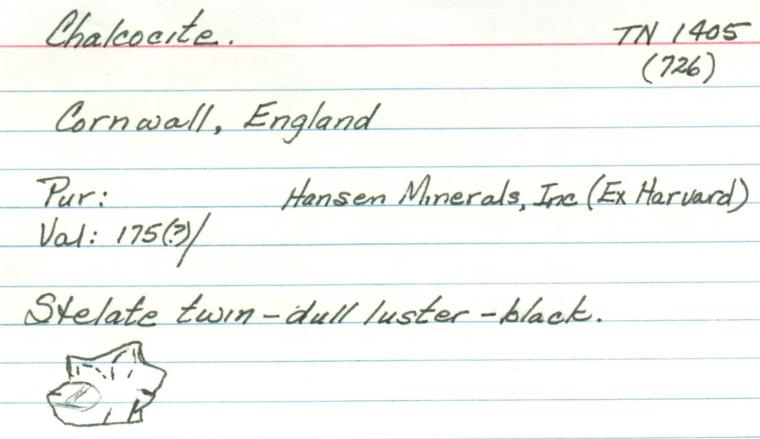 Chalcocite. TN 1405
(726)
Cornwall, England
Pur: Hansen Minerals, Inc (Ex Harvard)
Val: 175(?)/
Stelate twin - dull luster - black.